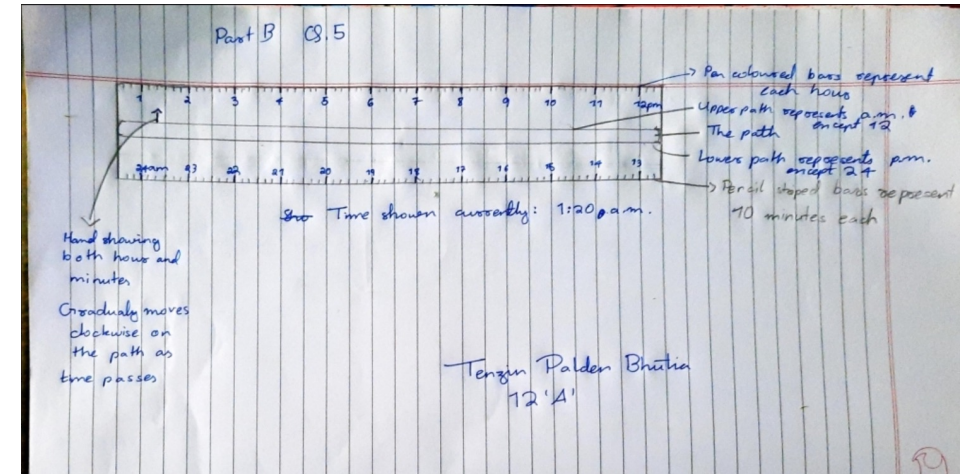 Part B Q.5
1 2 3 4 5 6 7 8 9 10 11 12pm
24am 23 22 21 20 19 18 17 16 15 14 13
→ Pen coloured bars represent
each hour
Upper path represents a.m.
except 12
→ The path
Lower path represents p.m.
except 24
→ Pencil shaped bars represent
10 minutes each
Time shown currently: 1:20 a.m.
Hand showing
both hour and
minutes
Gradualy moves
clockwise on
the path as
time passes
Tenzin Palden Bhutia
12 'A'